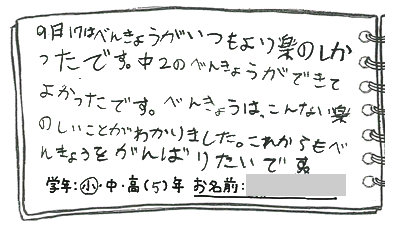 9月17はべんきょうがいつもより楽のしか
ったです。中2のべんきょうができて
よかったです。べんきょうは、こんない楽
のしいことがわかりました。これからもべ
んきょうをがんばりたいです。
学年:小・中・高(5)年 お名前: